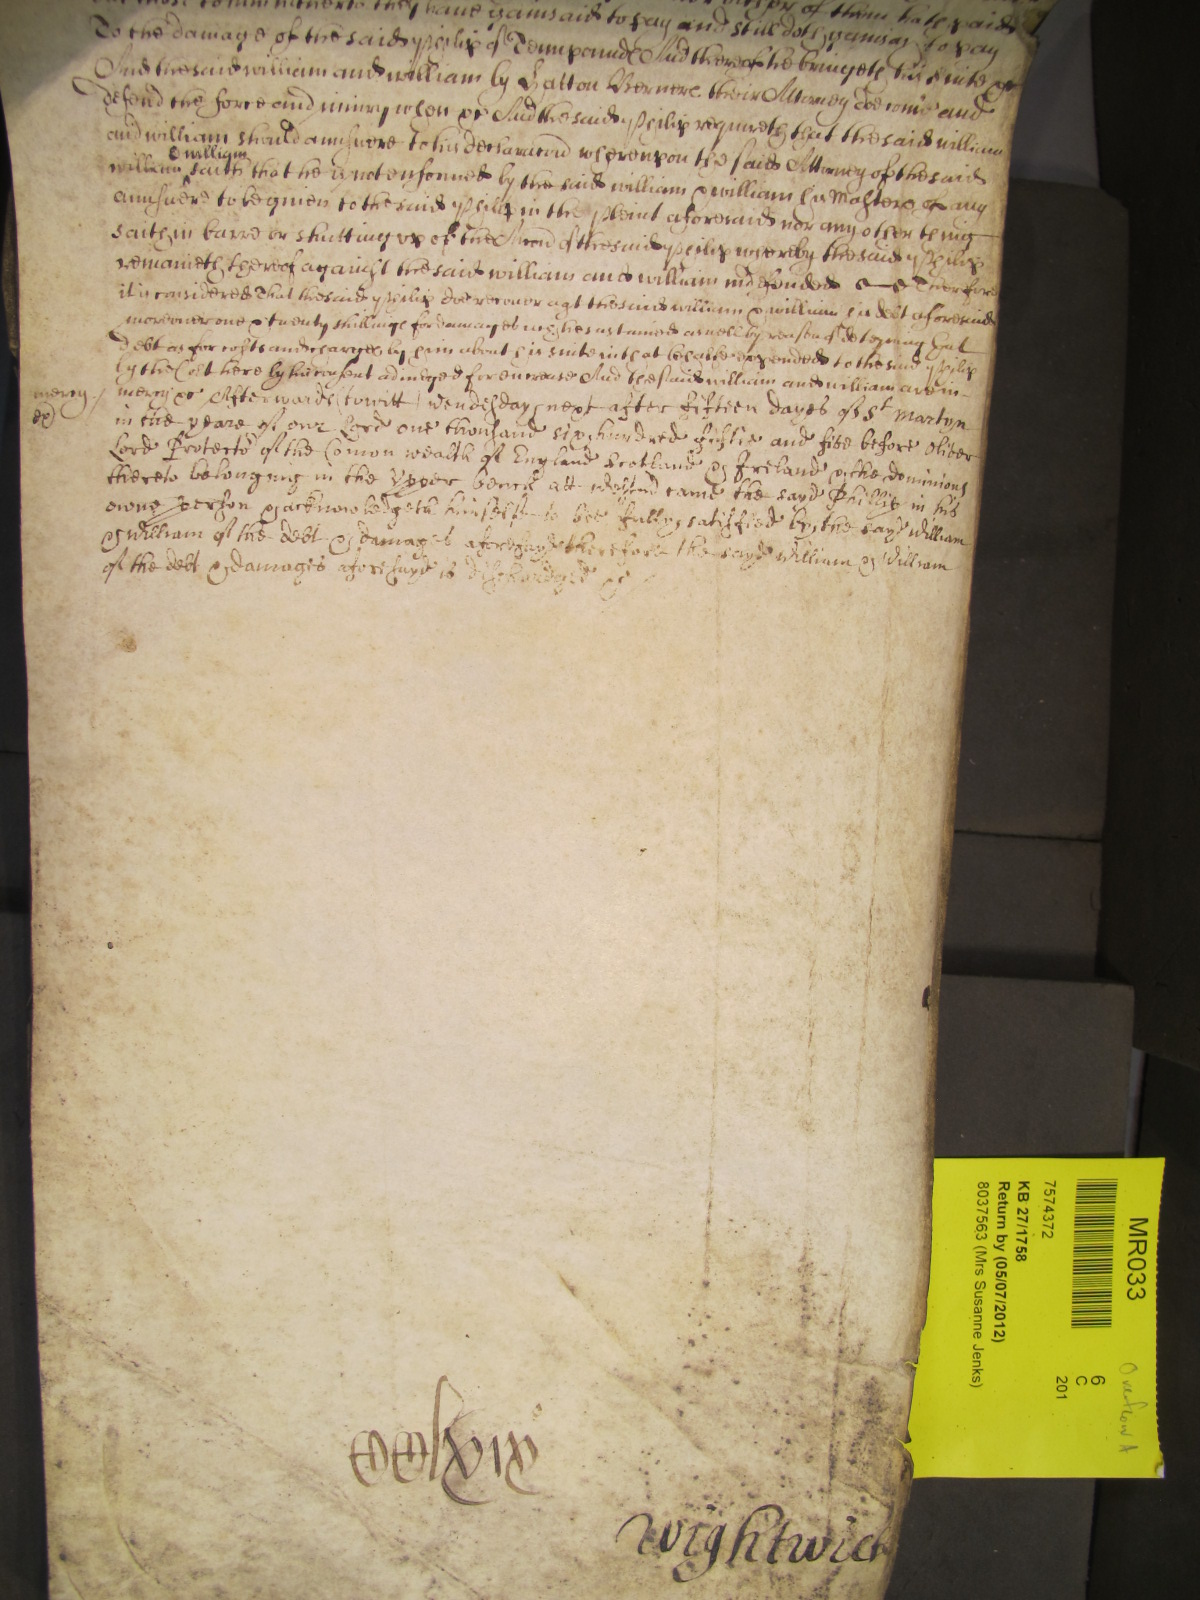 they have gainsaid to pay and still doth gainsay to pay
To the damage of the said Philip of Tenn pounds And thereof he bringeth his suite &c
And the said william and william by Gatton Verner their Attorney doe come and
defend the force and iniury when &c And the said Philip requireth that the said william
and william should answere to his declaracon whereupon the said Attorney of the said
& william
william saith that he is not enformed by the said william & william his Masters of any
answere to be given to the said Philip in the Pleint aforesaid nor any other thing
saith in barre or shutting up of the Accon of the said Philip whereby the said Philip
remaineth thereof against the said william and william undefended Therefore
it is considered That the said Philip doe recover agt the said william & william his debt aforesaid
moreover one & twenty shillings for damages wch he sustained aswell by reason of deteyning that
debt as for costs and charges by him about his suite in that behalfe expended to the said Philip
by the Cort here by his consent adiudged for encrease And the said william and william are in
mercy
mercy &c Afterwards (towitt) Wendesday next after fifteen dayes of St Martyn
in the yeare of our Lord one thousand six hundred fiftie and five before Oliver
Lord Protector of the Comon wealth of England Scotland & Ireland & the dominions
thereto belonging in the Upper bench att came the sayd Phillip in his
owne person & acknowledgeth himselfe to bee fully satisfied by the sayd William
& William of the debt & damages aforesayd therefore the sayd William & William
of the debt & damages aforesayd is discharged &c
cclxix
Wightwick
MR033
7574372
KB 27/1758
Return by (05/07/2012)
8037563 (Mrs Susanne Jenks)
6
C
201
Overflow A